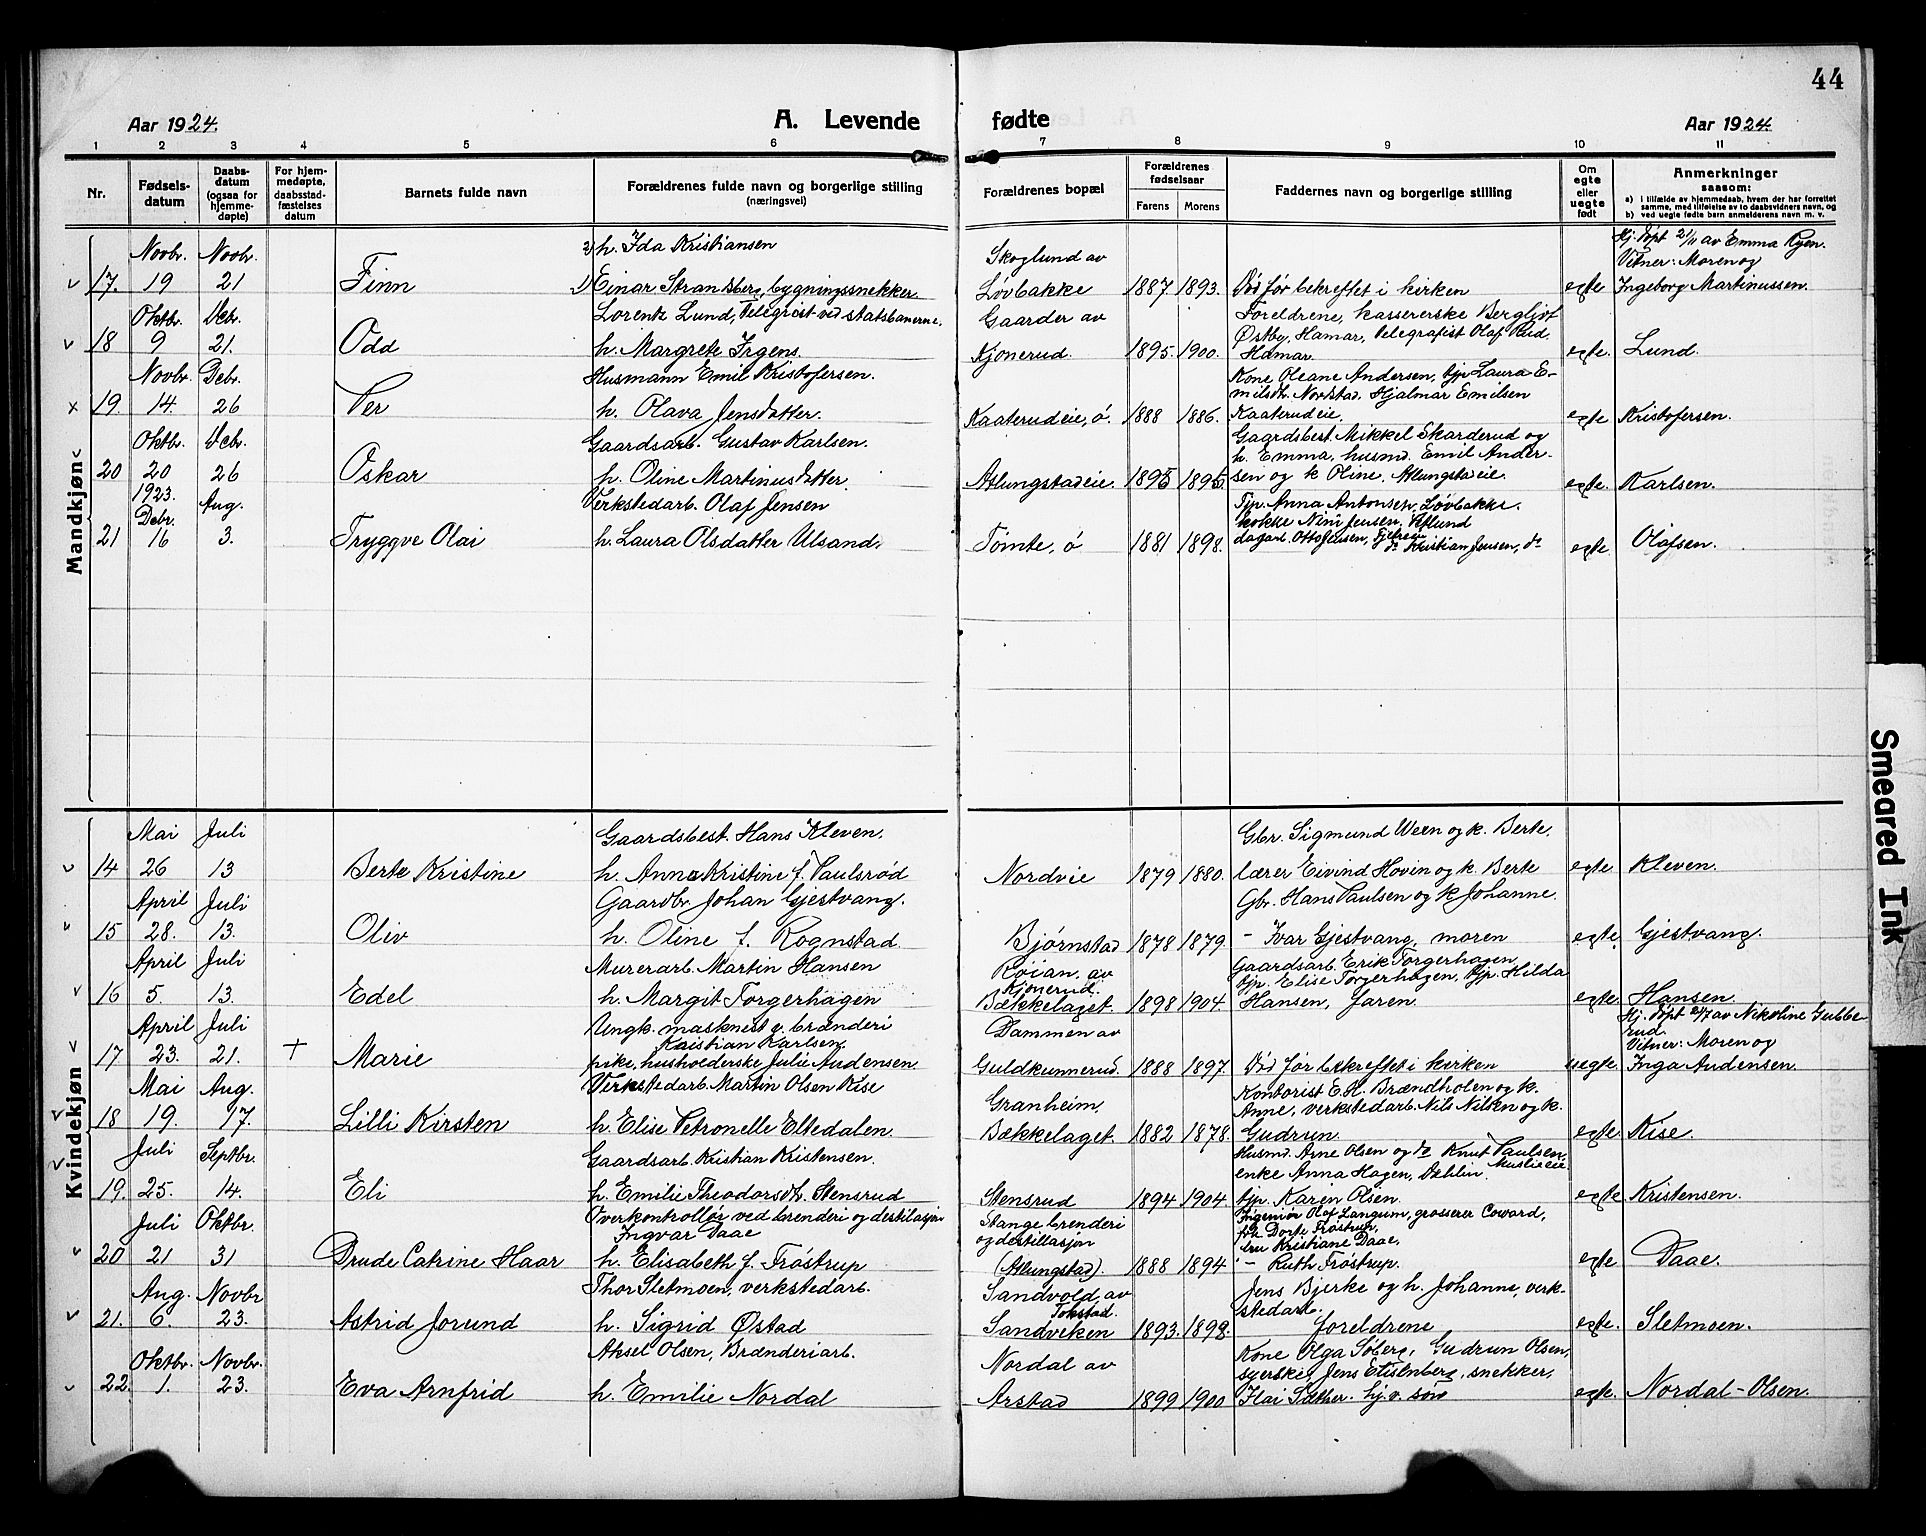 44
Aar 1924.
A. Levende fødte
Aar 1924.
1 2 3 4 5 6 7 8 9 10 11
Nr.
Fødsels-datum
Daabs-datum (ogsaa for hjemme-døpte)
For hjem-medøpte, daabsstad-fæstelses datum
Barnets fulde navn
Forældrenes fulde navn og borgerlige stilling (næringsvei)
Forældrenes bopæl
Forældrenes fødselsaar
Farens Morens
Faddernes navn og borgerlige stilling
Om egte eller uegte født
Anmerkninger saasom:
a) i tilfælde av hjemmedaab, hvem der har forrettet samme, med tilføielse av to daabsvidners navn, og
b) ved uegte fødte barn anmelderens navn m. v.
Mandkjøn
Novbr. Novbr. 2) h. Ida Kristiansen Skoglund av Hj. døpt 21/11 av Emma Ryen.
Vitner: Moren og
17. 19 21 Finn 1) Einar Strandberg, bygningssnekker Løvbakke 1887 1893. Død før bekreftet i kirken egte Ingeborg Martinussen.
Oktbr. Debr. Lorentz Lund, Telegrist ved statsbanerne, Gaarder av Foreldrene, kassererske Bergljot
Østby, Hamar, telegrafist Olaf Rud.
18 9 21. Odd h. Margrete Irgens. Kjonerud. 1895. 1900. Hamar. egte. Lund.
Novbr. Debr. Husmann Emil Kristofersen. Kone Oleane Andersen, tjp. Laura E-
milsdt. Nordstad, Hjalmar Emilsen
19. 14. 26 Per h. Olava Jensdatter. Kaaterudeie, ø. 1888 1886. Kaaterudeie, egte Kristofersen.
Oktbr. Debr. Gaardsarb. Gustav Karlsen. Gaardsbest. Mikkel Skarderud og
h. Emma, husmd. Emil Ander-
20 20 26 Oskar h. Oline Martinusdatter. Atlungstadeie. 1895 1895. sen og k Oline, Atlungstadeie. egte. Karlsen.
1923. Debr. Aug. Verkstedarb. Olaf Jensen Tjp. Anna Antonsen, Løvbakke.
kokke Nini Jensen,
21 16 3. Tryggve Olai h. Laura Olsdatter Ulsand. Tømte, ø 1881 1898. dagarb. Otto Jensen, do Kristian Jensen, do egte. Olafsen.
Kvindekjøn
Mai Juli Gaardsbest. Hans Kleven. Gbr. Sigmund Ween og k. Berte,
14 26 13 Berte Kristine h. Anna Kristine f. Paulsrød Nordvie 1879 1880. lærer Eivind Hovin og k. Berte egte Kleven.
April Juli Gaardbr. Johan Gjestvang. Gbr. Hans Paulsen og k Johanne.
15 28. 13. Oliv h. Oline f. Rognstad. Bjørnstad 1878 1879. - Ivar Gjestvang, moren egte. Gjestvang.
April Juli Murerarb. Martin Hansen Roian. av Kjonerud. Gaardsarb. Erik Torgerhagen,
tjp. Elise Torgerhagen, tjp. Hilda
16 5. 13. Edel h. Margit Torgerhagen Bækkelaget. 1898 1904. Hansen, faren egte. Hansen.
April Juli Ungk. masknest v. brænderi Dammen av Hj. døpt 21/7 av Nikoline Gubbe-
rud.
Kristian Karlsen. Vitner: Moren og
17 23. 21. + Marie pike, husholderske Julie Audensen Guldkunnerud. 1888 1897. Død før bekreftet i kirken uegte. Inga Audensen.
Mai Aug. Verkstedarb. Martin Olsen Kise Granheim. Kontorist E. H. Brændholen og k.
Anne, verkstedarb. Nils Nilsen og k.
18 19. 17. Lilli Kirsten h. Elise Petronelle Eltedalen. Bækkelaget. 1882 1878. Gudrun. egte. Kise.
Juli Septbr. Gaardsarb. Kristian Kristensen. Husmd. Arne Olsen og do Knut Paulsen,
enke Anna Hagen, Dahlin
19. 25. 14. Eli h. Emilie Theodorsdt. Stensrud Stensrud 1894 1904. tjp. Karen Olsen. egte Kristensen.
Juli Oktbr. Overkontrollør ved brenderi og destilasjon Stange brenderi Ingeniør Olaf Langum, grosserer Coward,
Ingvar Daae og destillasjon frk Dorte Frøstrup, fru Kristiane Daae,
20 21 31 Drude Catrine Haar h. Elisabeth f. Frøstrup (Atlungstad). 1888 1894 - Ruth Frøstrup. egte Daae.
Aug. Novbr Thor Sletmoen, verkstedarb. Sandvold av Tokstad. Jens Bjerke og h. Johanne, verk-
stedarb.
21. 6. 23. Astrid Jorund h. Sigrid Østad Sandviken 1893. 1898. foreldrene egte. Sletmoen.
Oktbr. Novbr. Aksel Olsen, Brænderiarb. Nordal av Kone Olga Søberg, Gudrun Olsen,
syerske, Jens Etisenberg, snekker,
22. 1. 23. Eva Arnfrid h. Emilie Nordal Arstad 1899 1900 egte. Nordal-Olsen.
Smeared Ink